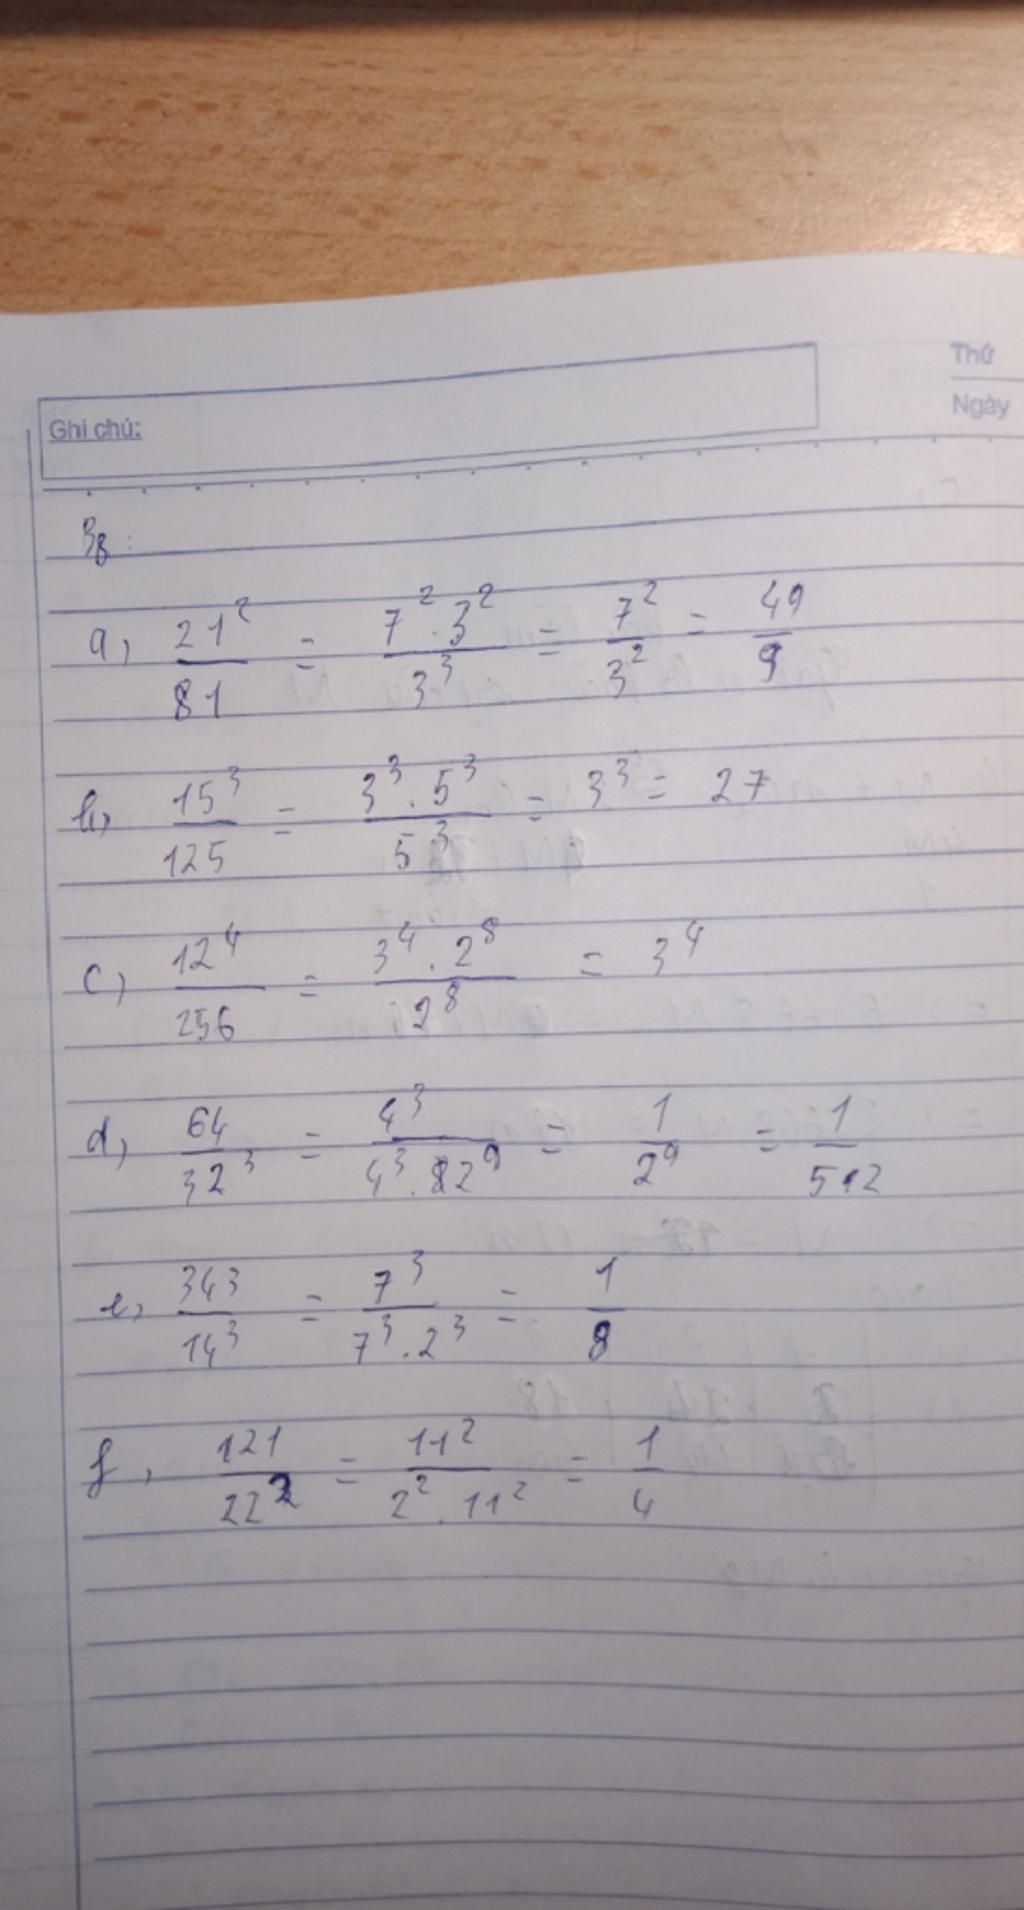 Thứ
Ngày
Ghi chú:
B8:
a, 21²/81 = 7².3²/3³ = 7²/3² = 49/9
b, 15³/125 = 3³.5³/5³ = 3³ = 27
c, 12⁴/256 = 3⁴.2⁸/2⁸ = 3⁴
d, 64/32³ = 4³/4³.2⁹ = 1/2⁹ = 1/512
e, 343/14³ = 7³/7³.2³ = 1/8
f, 121/22² = 11²/2².11² = 1/4